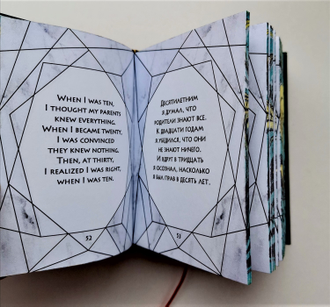 When I was ten,
I thought my parents
knew everything.
When I became twenty,
I was convinced
they knew nothing.
Then, at thirty,
I realized I was right,
when I was ten.
32
Десятилетним
я думал, что
родители знают все.
К двадцати годам
я убедился, что они
не знают ничего.
И вдруг в тридцать
я осознал, насколько
я был прав в десять лет.
33